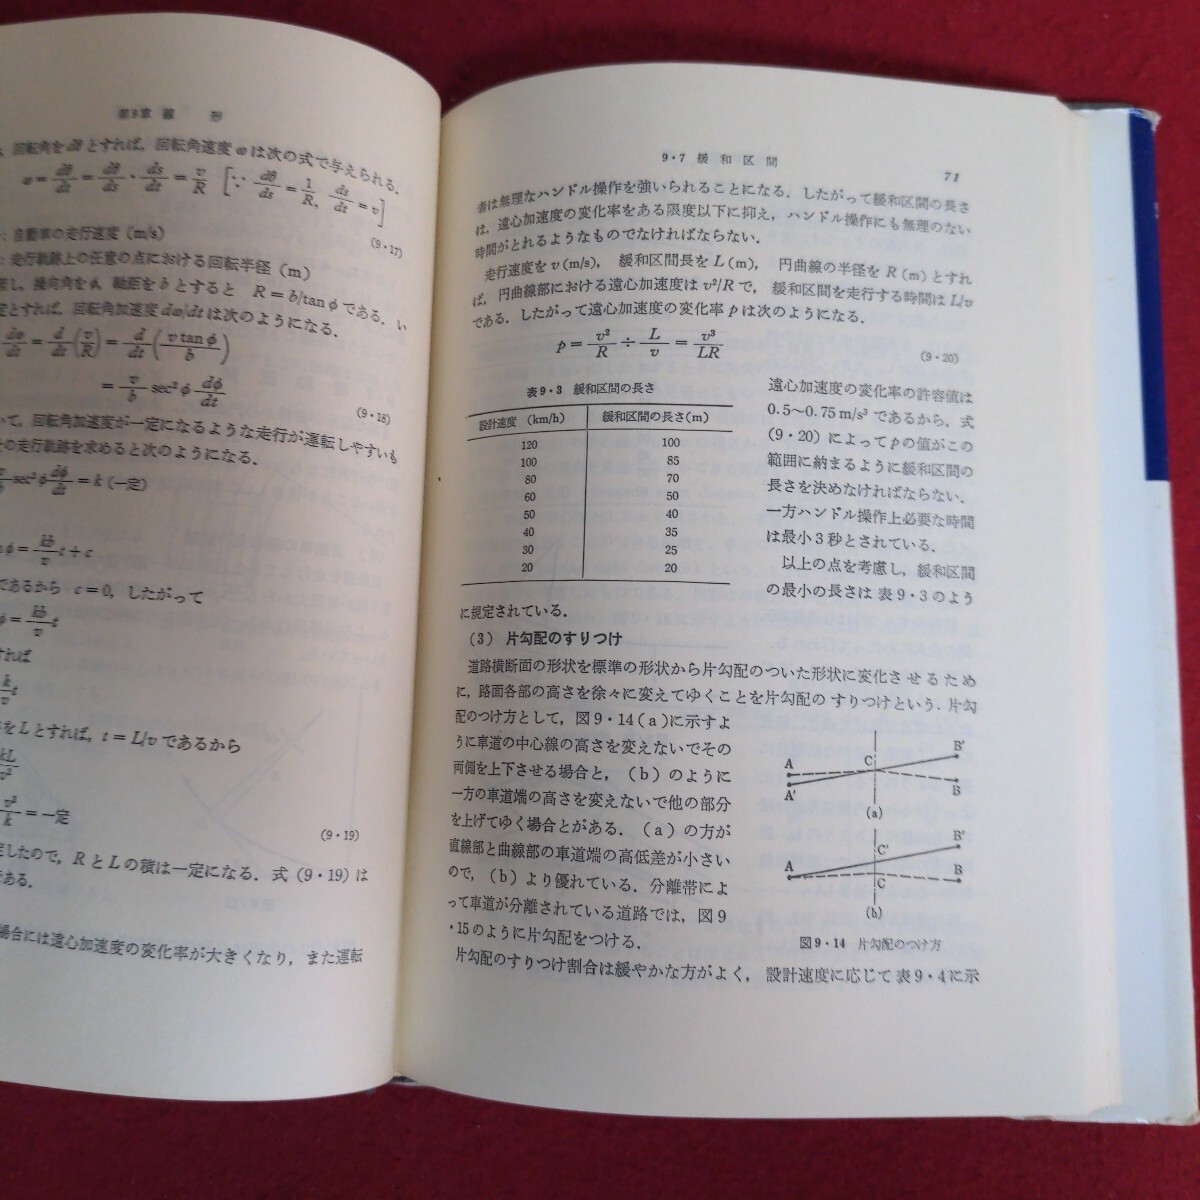 第9章 線 形
回転角をdθとすれば, 回転角速度ωは次の式で与えられる.
ω = dθ/dt = dθ/ds · ds/dt = v/R [∵ dθ/ds = 1/R, ds/dt = v]
(9・17)
: 自動車の走行速度 (m/s)
: 走行軌跡上の任意の点における回転半径 (m)
し, 操向角をφ, 軸距を b とすると R=b/tanφ である. い
定とすれば, 回転角加速度 dω/dt は次のようになる.
dω/dt = d/dt (v/R) = d/dt (v tanφ/b)
= v/b sec²φ dφ/dt
(9・18)
いて, 回転角加速度が一定になるような走行が運転しやすいも
の走行軌跡を求めると次のようになる.
v/b sec²φ dφ/dt = k (一定)
φ = kb/v t + c
であるから c=0, したがって
φ = kb/v t
すれば
k/v t
をLとすれば, t=L/v であるから
kL/v²
v²/k = 一定
(9・19)
定したので, RとLの積は一定になる. 式 (9・19) は
である.
場合には遠心加速度の変化率が大きくなり, また運転
9・7 緩和区間
71
者は無理なハンドル操作を強いられることになる. したがって緩和区間の長さ
は, 遠心加速度の変化率をある限度以下に抑え, ハンドル操作にも無理のない
時間がとれるようなものでなければならない.
走行速度を v (m/s), 緩和区間長を L (m), 円曲線の半径を R (m) とすれ
ば, 円曲線部における遠心加速度は v²/R で, 緩和区間を走行する時間は L/v
である. したがって遠心加速度の変化率 p は次のようになる.
p = v²/R ÷ L/v = v³/LR
(9・20)
表9・3 緩和区間の長さ
設計速度 (km/h) 緩和区間の長さ(m)
120 100
100 85
80 70
60 50
50 40
40 35
30 25
20 20
遠心加速度の変化率の許容値は
0.5〜0.75 m/s³ であるから, 式
(9・20) によって p の値がこの
範囲に納まるように緩和区間の
長さを決めなければならない.
一方ハンドル操作上必要な時間
は最小3秒とされている.
以上の点を考慮し, 緩和区間
の最小の長さは 表9・3のよう
に規定されている.
(3) 片勾配のすりつけ
道路横断面の形状を標準の形状から片勾配のついた形状に変化させるため
に, 路面各部の高さを徐々に変えてゆくことを片勾配のすりつけという. 片勾
配のつけ方として, 図9・14(a)に示すよ
うに車道の中心線の高さを変えないでその
両側を上下させる場合と, (b) のように
一方の車道端の高さを変えないで他の部分
を上げてゆく場合とがある. (a) の方が
直線部と曲線部の車道端の高低差が小さい
ので, (b) より優れている. 分離帯によ
って車道が分離されている道路では, 図9
・15のように片勾配をつける.
A
A'
C
B'
B
(a)
A
C'
C
B'
B
(b)
図9・14 片勾配のつけ方
片勾配のすりつけ割合は緩やかな方がよく, 設計速度に応じて 表9・4に示